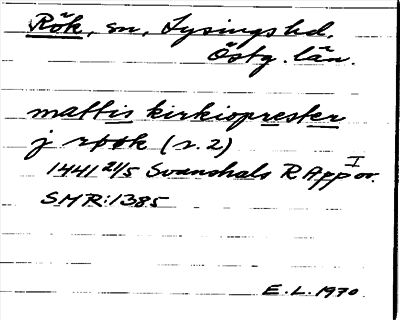 Rök, sn, Lysings hd,
Östg. län.
mattis kirkioprester
j røøk (r. 2)
1441 21/5 Svanshals R App I or.
SMR: 1385
E.L. 1970